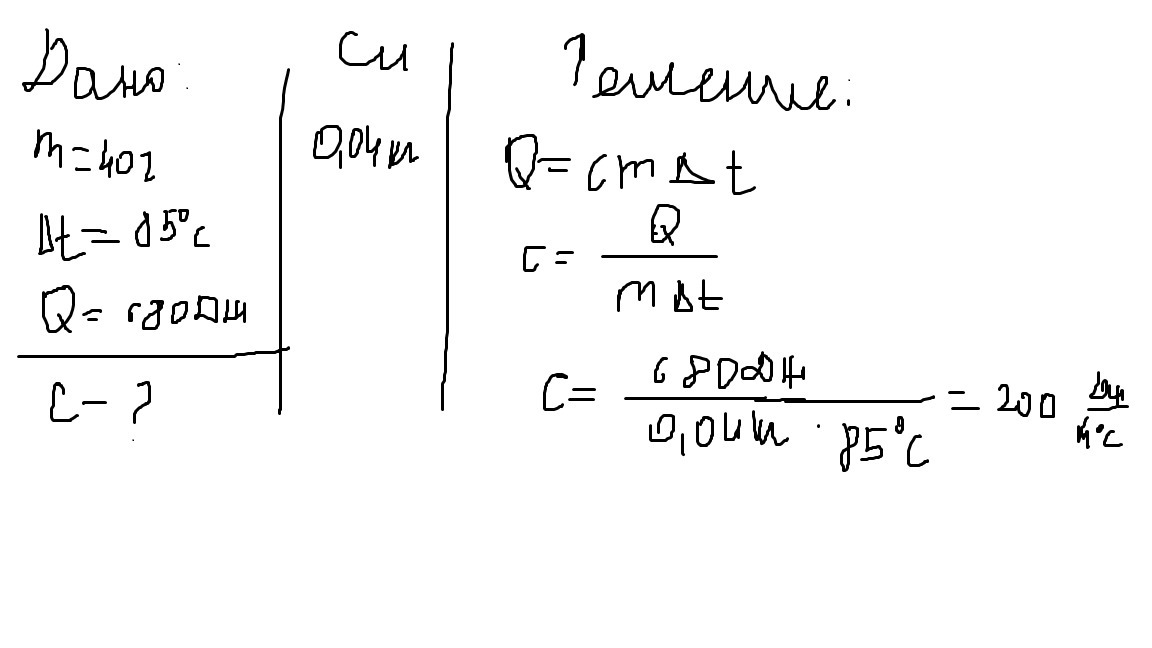 Дано:
m=40г
Δt=85°c
Q=680Дж
C-?
Си
0,04кг
Решение:
Q=cmΔt
c=Q/mΔt
C=680Дж/0,04кг·85°C=200 Дж/кг°C